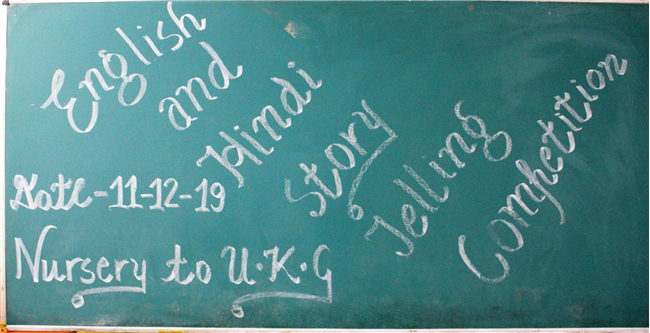 English
and
Hindi
Story
Telling
Competition
Date-11-12-19
Nursery to U.K.G